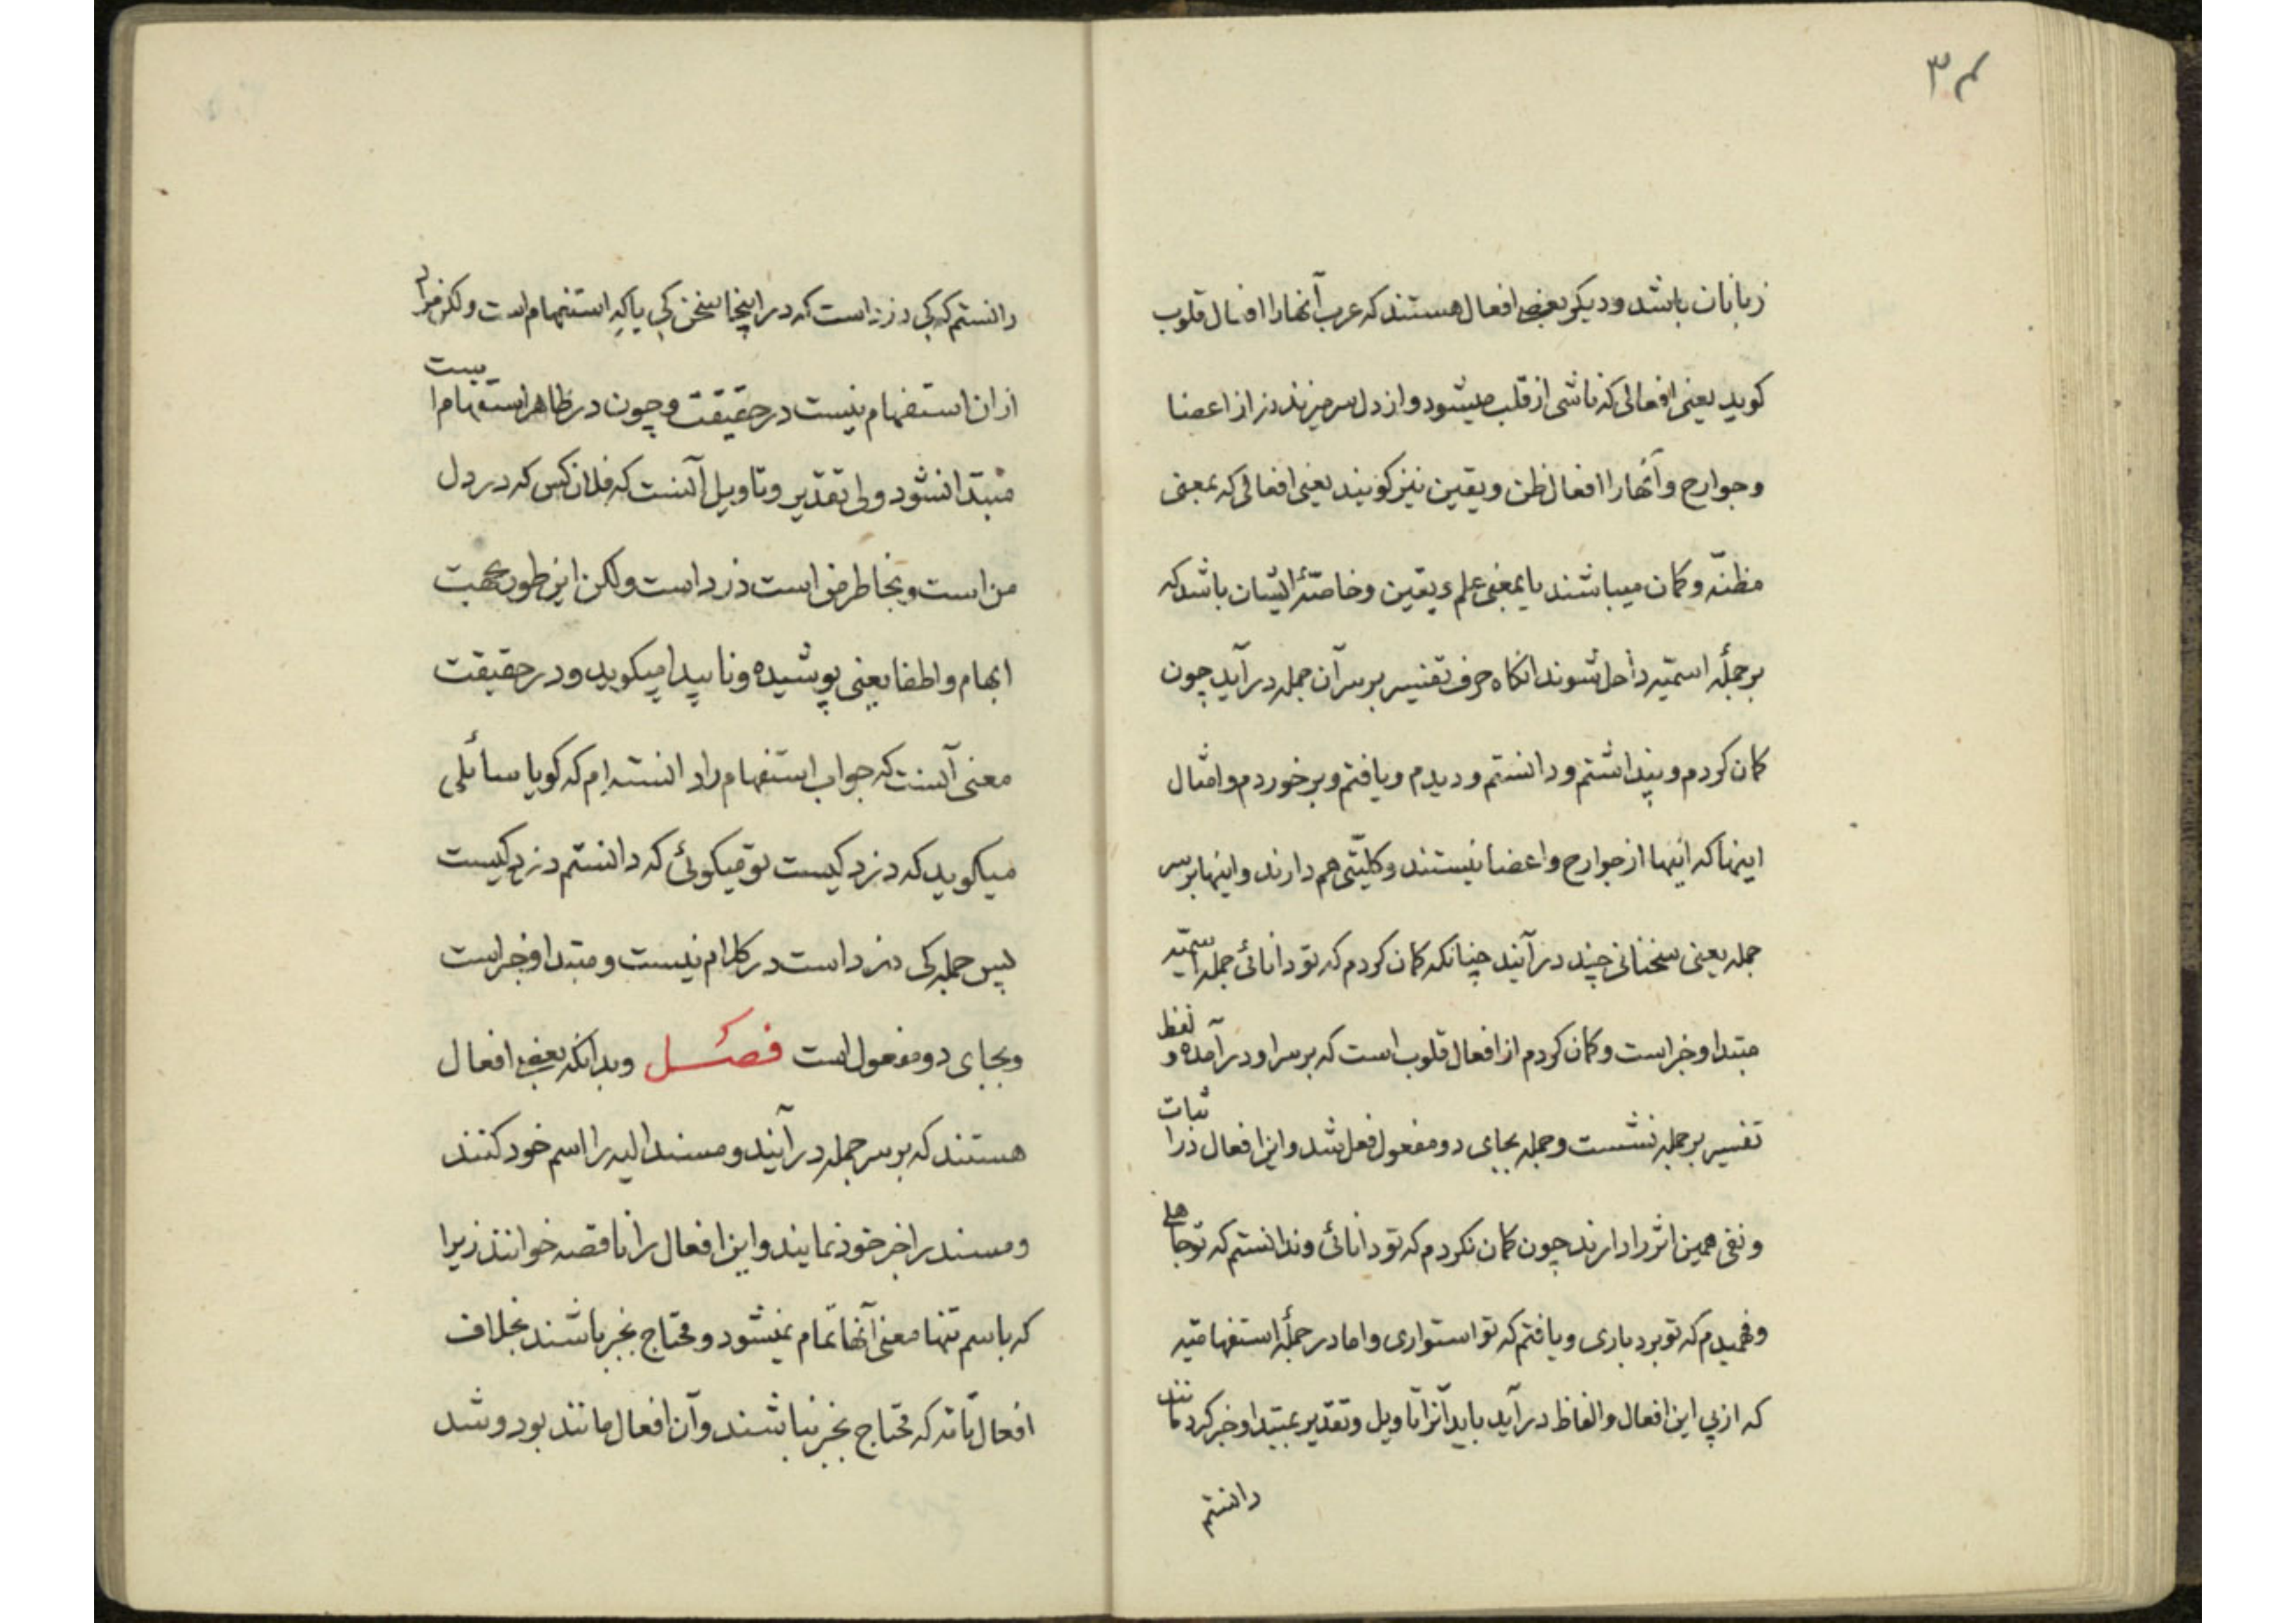 ۳۴
زبانان باشد و دیکر بعضی افعال هستند که عرب آنها را افعال قلوب
کوید یعنی افعالی که ناشی از قلب میشود و از دل سر میزند نه از اعضا
و جوارح و آنها را افعال ظن و یقین نیز کویند یعنی افعالی که بمعنی
مظنّه و کمان میباشند یا بمعنی علم و یقین و خاصّهٔ ایشان باشد که
بر جملهٔ اسمیّه داخل شوند انکاه حرف تفسیر بر سر آن جمله در آید چون
کمان کردم و پنداشتم و دانستم و دیدم و یافتم و برخوردم و امثال
اینها که اینها از جوارح و اعضا نیستند و کلیّتی هم دارند و اینها بر سر
جمله یعنی سخنانی چند در آیند چنانکه کمان کردم که تو دانائی جمله اسمیّه
مبتدا و خبر است و کمان کردم از افعال قلوب است که بر سر او در آمده و لفظ
تفسیر بر جمله نشست و جمله بجای دو مفعول فعل شد و این افعال در اثبات
و نفی همین اثر را دارند چون کمان نکردم که تو دانائی و ندانستم که تو جاهلی
و فهمیدم که تو بردباری و یافتم که تو استواری و اما در جملهٔ استفهامیّه
که از پی این افعال و الفاظ در آید باید آنرا تاویل و تقدیر بمبتدا و خبر کرد مانند
دانستم
دانستم که کی دزد است که در اینجا سخن کی یا که استفهام است ولکن مراد
از ان استفهام نیست در حقیقت و چون در ظاهر استفهام است
مبتدا نشود ولی تقدیر و تاویل آنست که فلان کس که در دل
من است و بخاطر من است دزد است ولکن این طور بجهت
ابهام و اطفا یعنی پوشیده و ناپیدا میکوید و در حقیقت
معنی آنست که جواب استفهام را دانسته ام که کویا سائلی
میکوید که دزد کیست تو میکوئی که دانستم دزد کیست
پس جمله کی دزد است در کلام نیست و مبتدا و خبر است
و بجای دو مفعول است فصل و بدانکه بعضی افعال
هستند که بر سر جمله در آیند و مسند الیه را اسم خود کنند
و مسند را خبر خود نمایند و این افعال را ناقصه خوانند زیرا
که باسم تنها معنی آنها تمام نمیشود و محتاج بخبر باشند بخلاف
افعال تامّه که محتاج بخبر نباشند و آن افعال مانند بود و شد